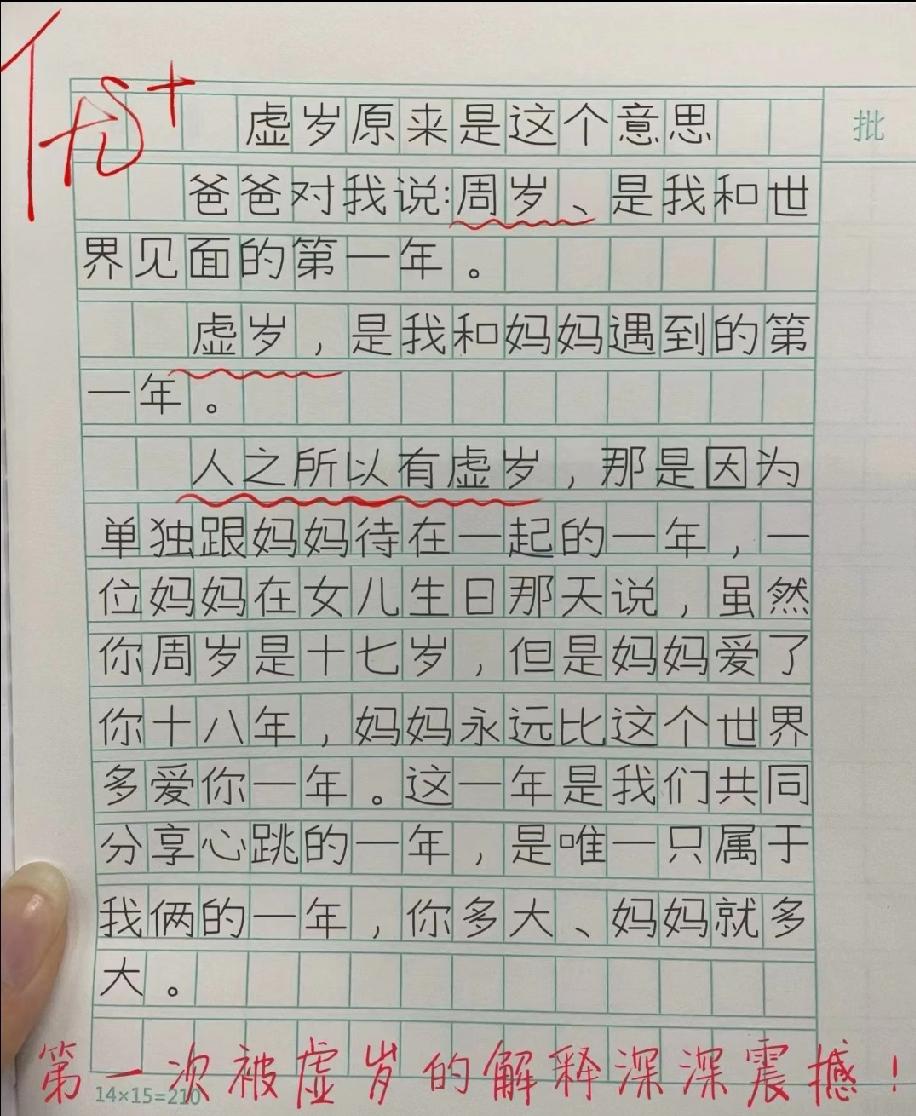 优+
虚岁原来是这个意思
批
爸爸对我说:周岁、是我和世
界见面的第一年。
虚岁，是我和妈妈遇到的第
一年。
人之所以有虚岁，那是因为
单独跟妈妈待在一起的一年，一
位妈妈在女儿生日那天说，虽然
你周岁是十七岁，但是妈妈爱了
你十八年，妈妈永远比这个世界
多爱你一年。这一年是我们共同
分享心跳的一年，是唯一只属于
我俩的一年，你多大、妈妈就多
大。
第一次被虚岁的解释深深震撼！
14×15=210